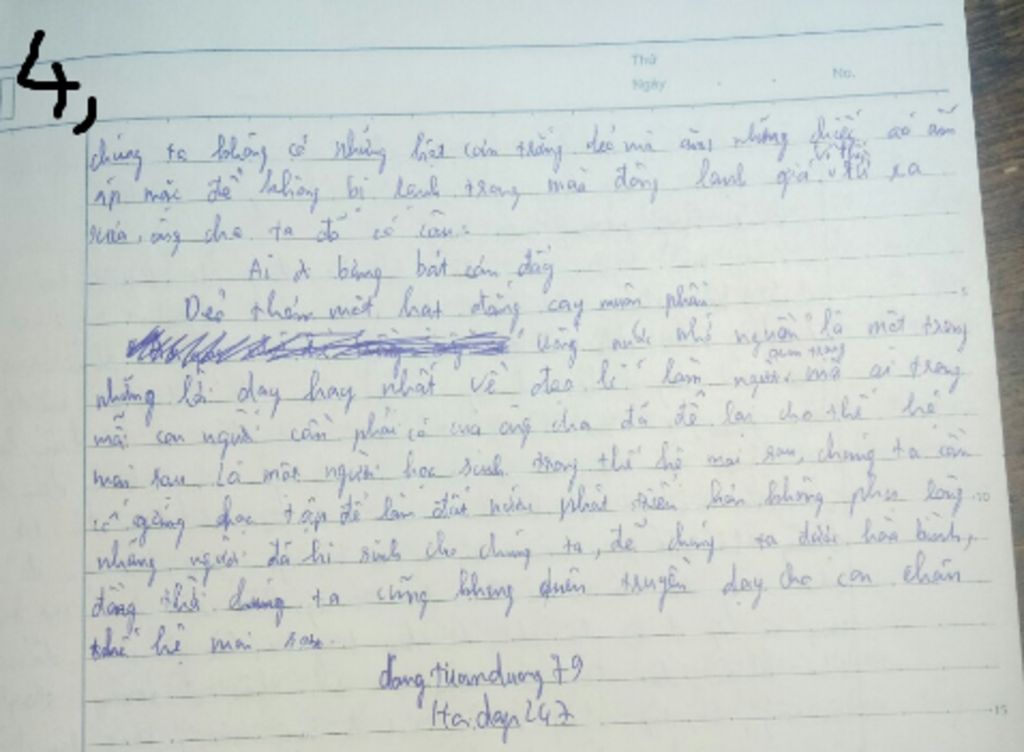 4,
Thứ
Ngày No.
chúng ta không có những hạt cơm trắng dẻo mà ăn, những chiếc áo ấm
áp mặc để không bị lạnh trong mùa đông lạnh giá. Vì thế từ xa
xưa, ông cha ta đã có câu:
Ai ơi bưng bát cơm đầy
Dẻo thơm một hạt đắng cay muôn phần
Uống nước nhớ nguồn là một trong
những lời dạy hay nhất về đạo lí làm người mà ai trong
quan trọng
mỗi con người cần phải có của ông cha đã để lại cho thế hệ
mai sau. Là một người học sinh trong thế hệ mai sau, chúng ta cần
cố gắng học tập để làm đất nước phát triển hơn không phụ lòng 10
những người đã hi sinh cho chúng ta, để chúng ta được hoà bình,
đồng thời chúng ta cũng không quên truyền dạy cho con cháu
thế hệ mai sau.
dangtuanduong79
Hoidap247
15